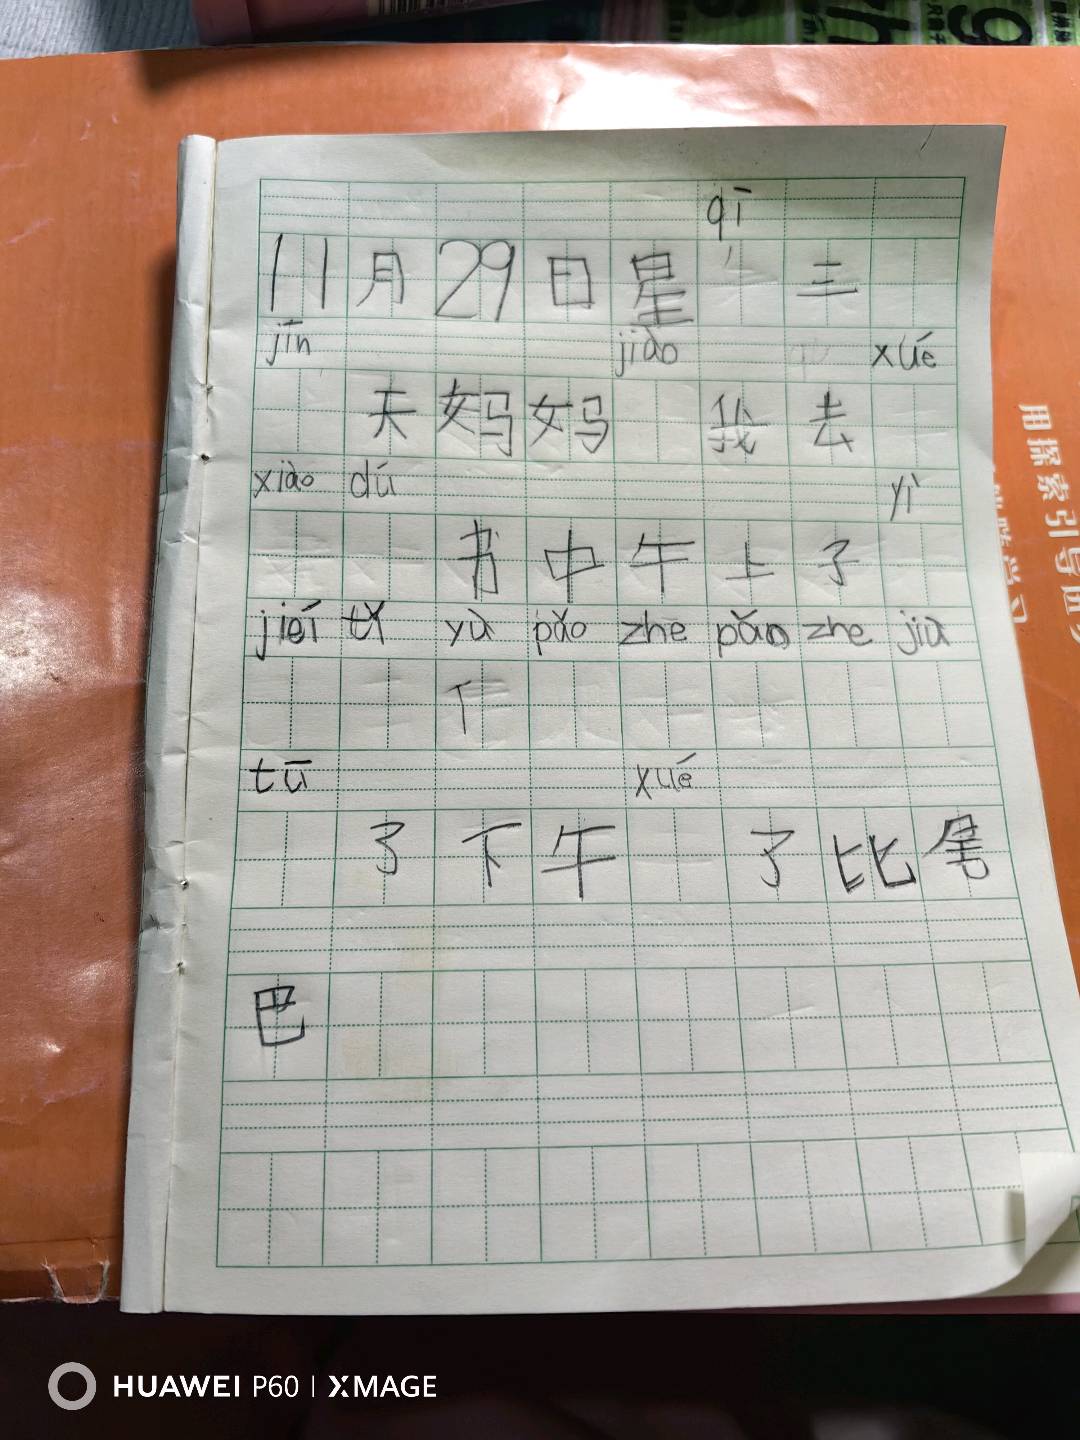 qī
11月29日星 三
jīn jiào xué
天妈妈 我去
xiào dú yì
书中午上了
jiéí tǐ yù pǎo zhe pǎn zhe jiā
下
tū xué
了下午 了比尾
巴
用探索引导
HUAWEI P60 | XMAGE